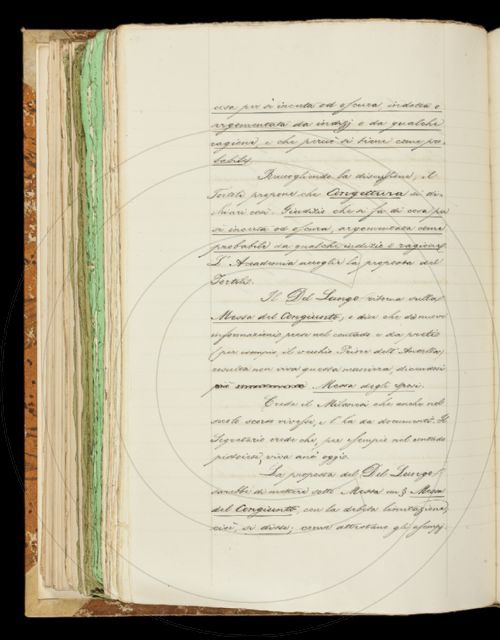 cosa per sè incerta od oscura, indotta o
argomentata da indizj o da qualche
ragione, e che perciò si tiene come pro-
babile.
Raccogliendo la discussione, il
Tortoli propone che Congettura si di-
chiari così: Giudizio che si fa di cosa per
sè incerta od oscura, argomentata come
probabile da qualche indizio o ragione.
L'Accademia accoglie la proposta del
Tortoli.
Il Del Lungo ritorna sulla
Messa del Congiunto, e dice che da nuove
informazioni prese nel contado e da preti
(per esempio, il vecchio Priore dell'Antella)
resulta non viva questa maniera, dicendosi
Messa degli sposi.
Crede il Milanesi che anche nel
secolo scorso vivesse, e l'ha da documenti. Il
Segretario crede che, per esempio nel contado
pistoiese, viva anc'oggi.
La proposta del Del Lungo
sarebbe di mettere sotto Messa un § Messa
del Congiunto, con la debita limitazione,
cioè, si disse, come attestano gli esempj.